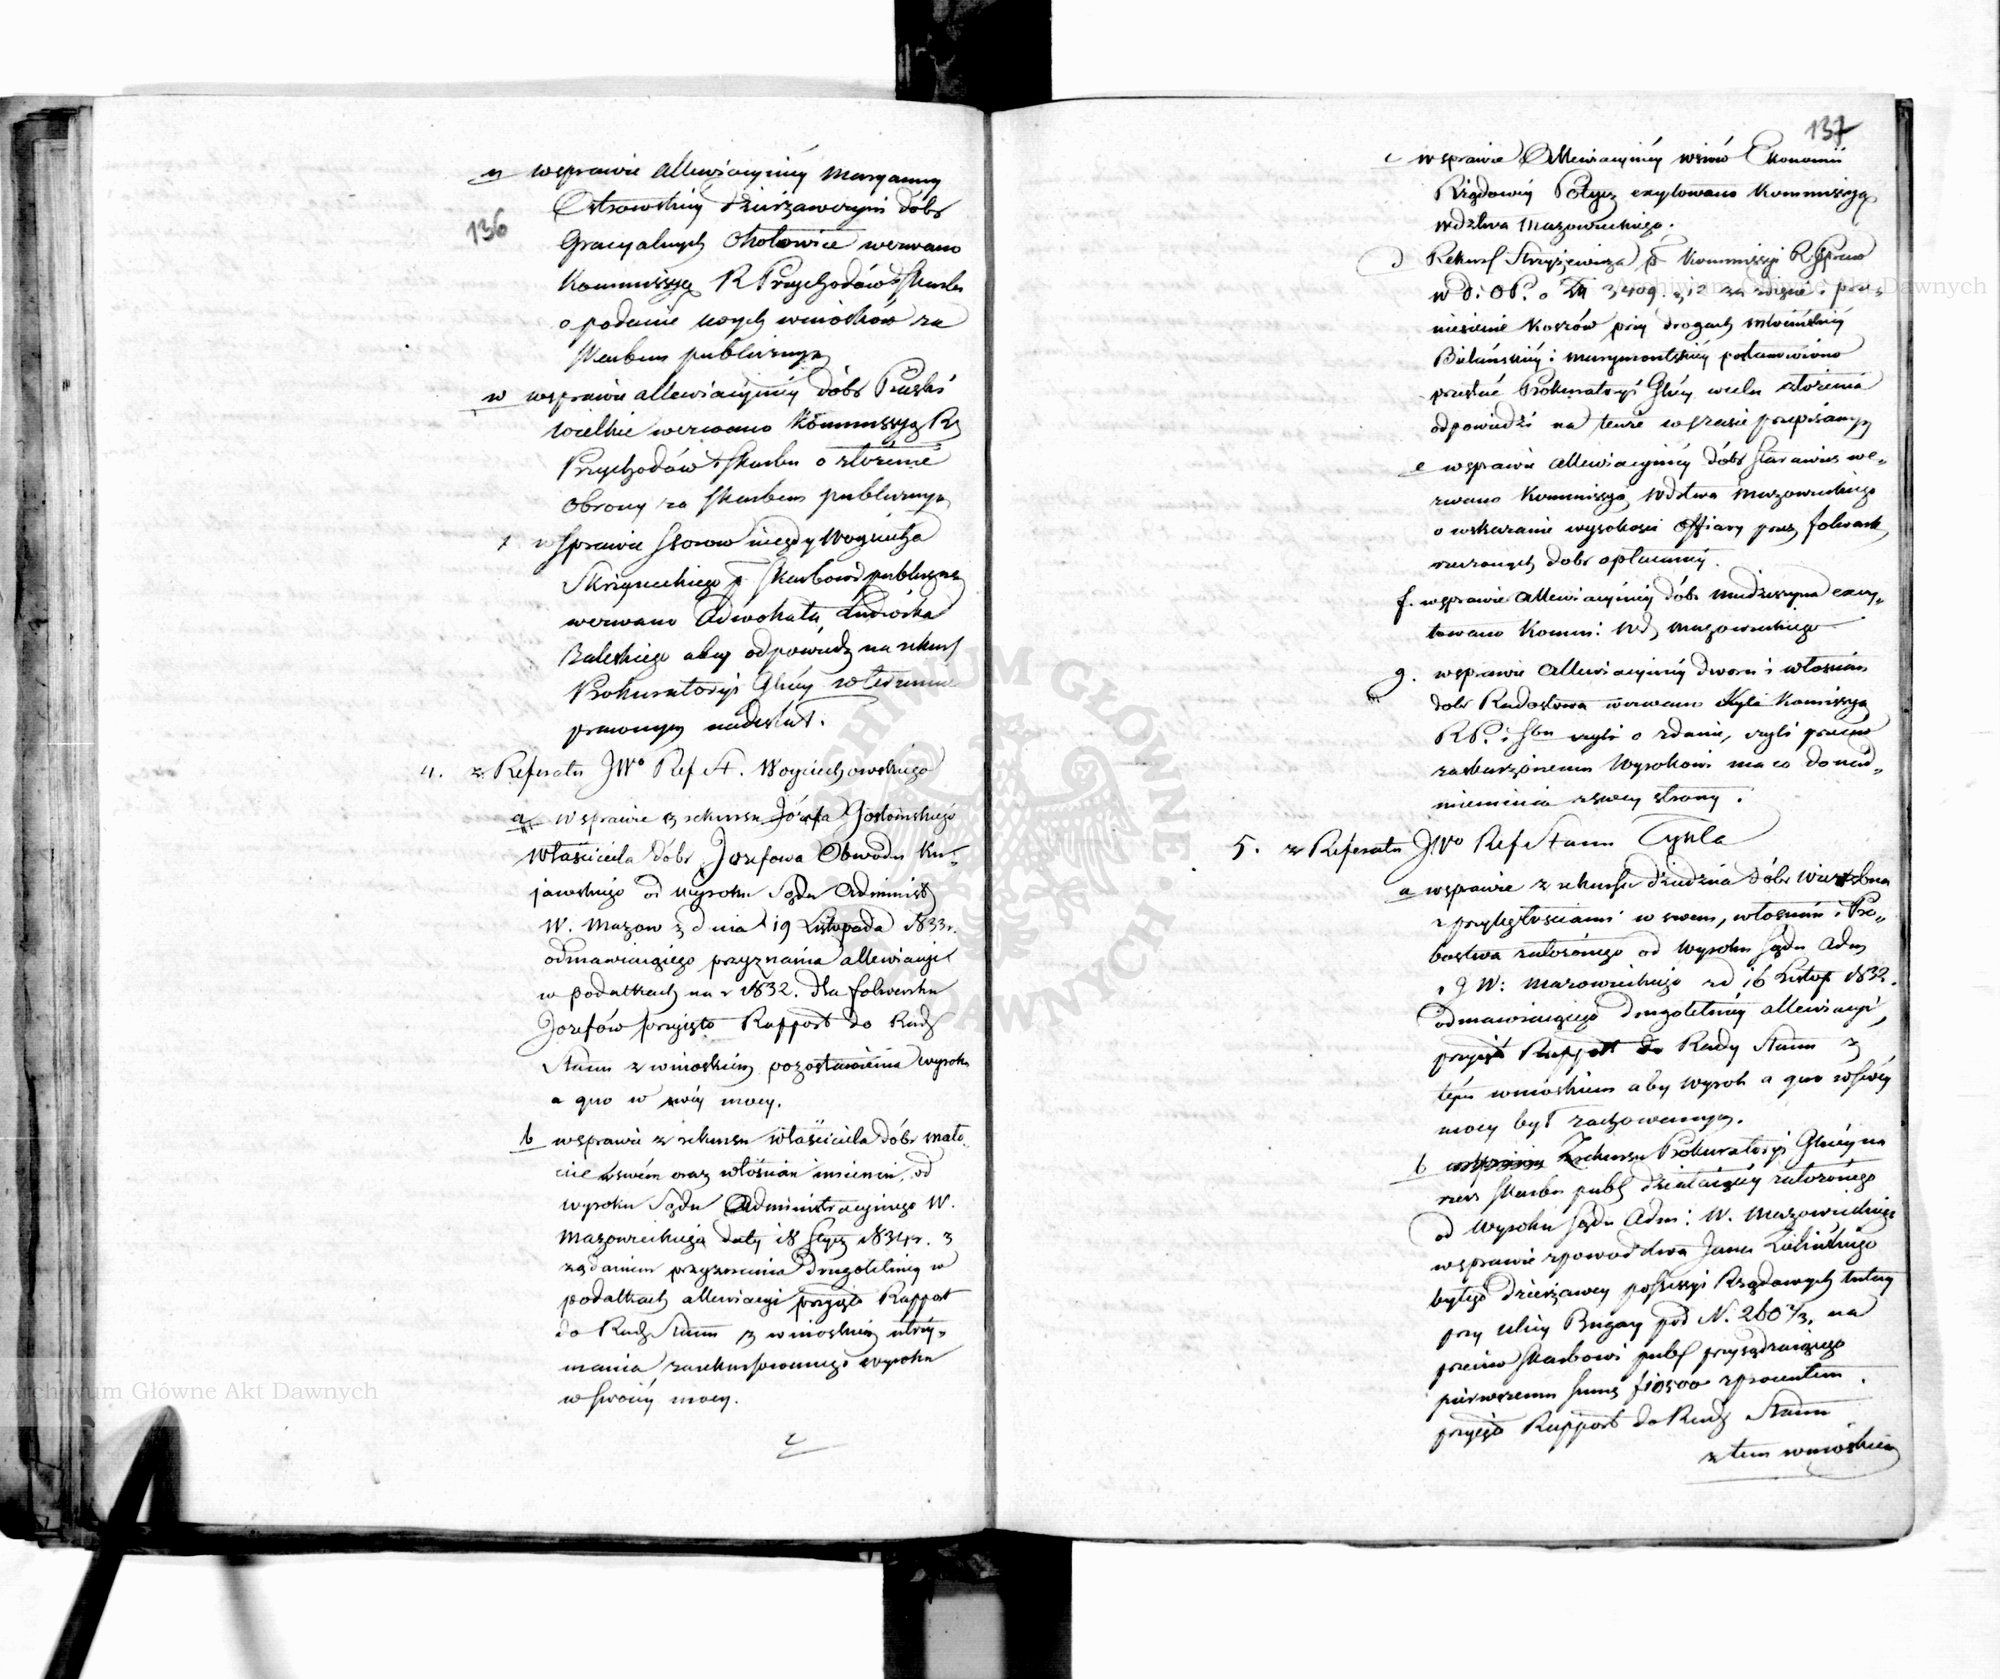 136
u wsprawie allewiacyiney Maryanny
Ostrowskiey dzierżawczyni dóbr
Gracyalnych Chotowice wezwano
Kommissyą R Przychodów i Skarbu
o podanie swych wniosków za
Skarbem publicznym
w wsprawie allewiacyiney dóbr Piaski
Wielkie wezwano Kommissyą Rz
Przychodów i Skarbu o złożenie
Obrony za Skarbem publicznym
wsprawie sporów między Woyciecha
Skrzyneckiego p Skarbowi publiczne
wezwano Adwokata Ludwika
Baleskiego aby odpowiedź na rekurs
Prokuratoryi Głney w terminie
prawnym nadesłał.
4. z Referatu JWo Ref St. Woyciechowskiego
a w sprawie z rekursu Józefa
Właściciela dóbr Jozefowa Obwodu Ku-
jawskiego od wyroku Sądu Administ
W. Mazow z dnia 19 Listopada 1833r.
odmawiaiącego przyznania allewiacyi
w podatkach na r 1832. dla folwarku
Jozefów przyięto Rapport do Rady
Stanu z wnioskiem pozostawienia wyroku
a quo w swéy mocy.
b wsprawie z rekursu właściciela dóbr
swém oraz włościan imieniu, od
wyroku Sądu Administracyinego W.
Mazowieckiego daty 18 Stycz 1834r. z
żądaniem przyznania długoletniey w
podatkach allewiacyi przyięto Rapport
do Rady Stanu z wnioskiem utrzy-
mania zarekursowanego wyroku
w swoiéy mocy.
137
c w sprawie Allewiacyiney wsiów Ekonomii
Rządowéy Potycz excytowano Kommissyą
wdztwa Mazowieckiego.
d Rekurs p Kommissyi R. Spraw
niesienie Koszów przy drogach młocińskiéy
Bielańskiéy i marymontskiéy postanowiono
przesłać Prokuratoryi Głney wcelu złożenia
odpowiedzi na tenże w czasie przepisanym
e wsprawie allewiacyiney dóbr Starawieś we-
zwano Kommissyą Wdztwa Mazowieckiego
o wskazanie wysokości offiary przez folwark
rzeczonych dobr opłacaney.
f. wsprawie allewiacyiney dóbr excy-
towano Kommi: Wd, Mazowieckiego
g. wsprawie allewiacyiney dworu i włościan
dobr Radostowa wezwano Kommissyą
RP. i Sbu o zdanie, czyli przeciw
zaskarżonemu Wyrokowi ma co do nad-
mienienia z swey strony.
5. z Referatu JWo Ref Stanu Tykla
a wsprawie z rekursu dziedzica dóbr Wierzbna
z przyległościami w swem, włościan i Pro-
bostwa założonego od wyroku Sądu Adm
W: Mazowieckiego zd 16 Listop 1832.
odmawiaiącego długoletniey allewiacyi,
przyięto Rapport do Rady Stanu z
tém wnioskiem aby wyrok a quo w swéy
mocy był zachowanym.
b wsprawie Zrekursu Prokuratoryi Głney na
rzecz Skarbu publ działaiącey założonego
od wyroku Sądu Adm: W. Mazowieckiego
wsprawie z powództwa Jana Zielińskiego
byłego dzierżawcy possessyi Rządowych tutay
przy ulicy Bugay pod N. 260 2/3, na
przeciw Skarbowi publ przysądzaiącego
pierwszemu summę f 10500 z procentem.
przyięto Rapport do Rady Stanu
z tem wnioskiem
Archiwum Główne Akt Dawnych
Archiwum Główne Akt Dawnych
ARCHIWUM GŁÓWNE AKT DAWNYCH